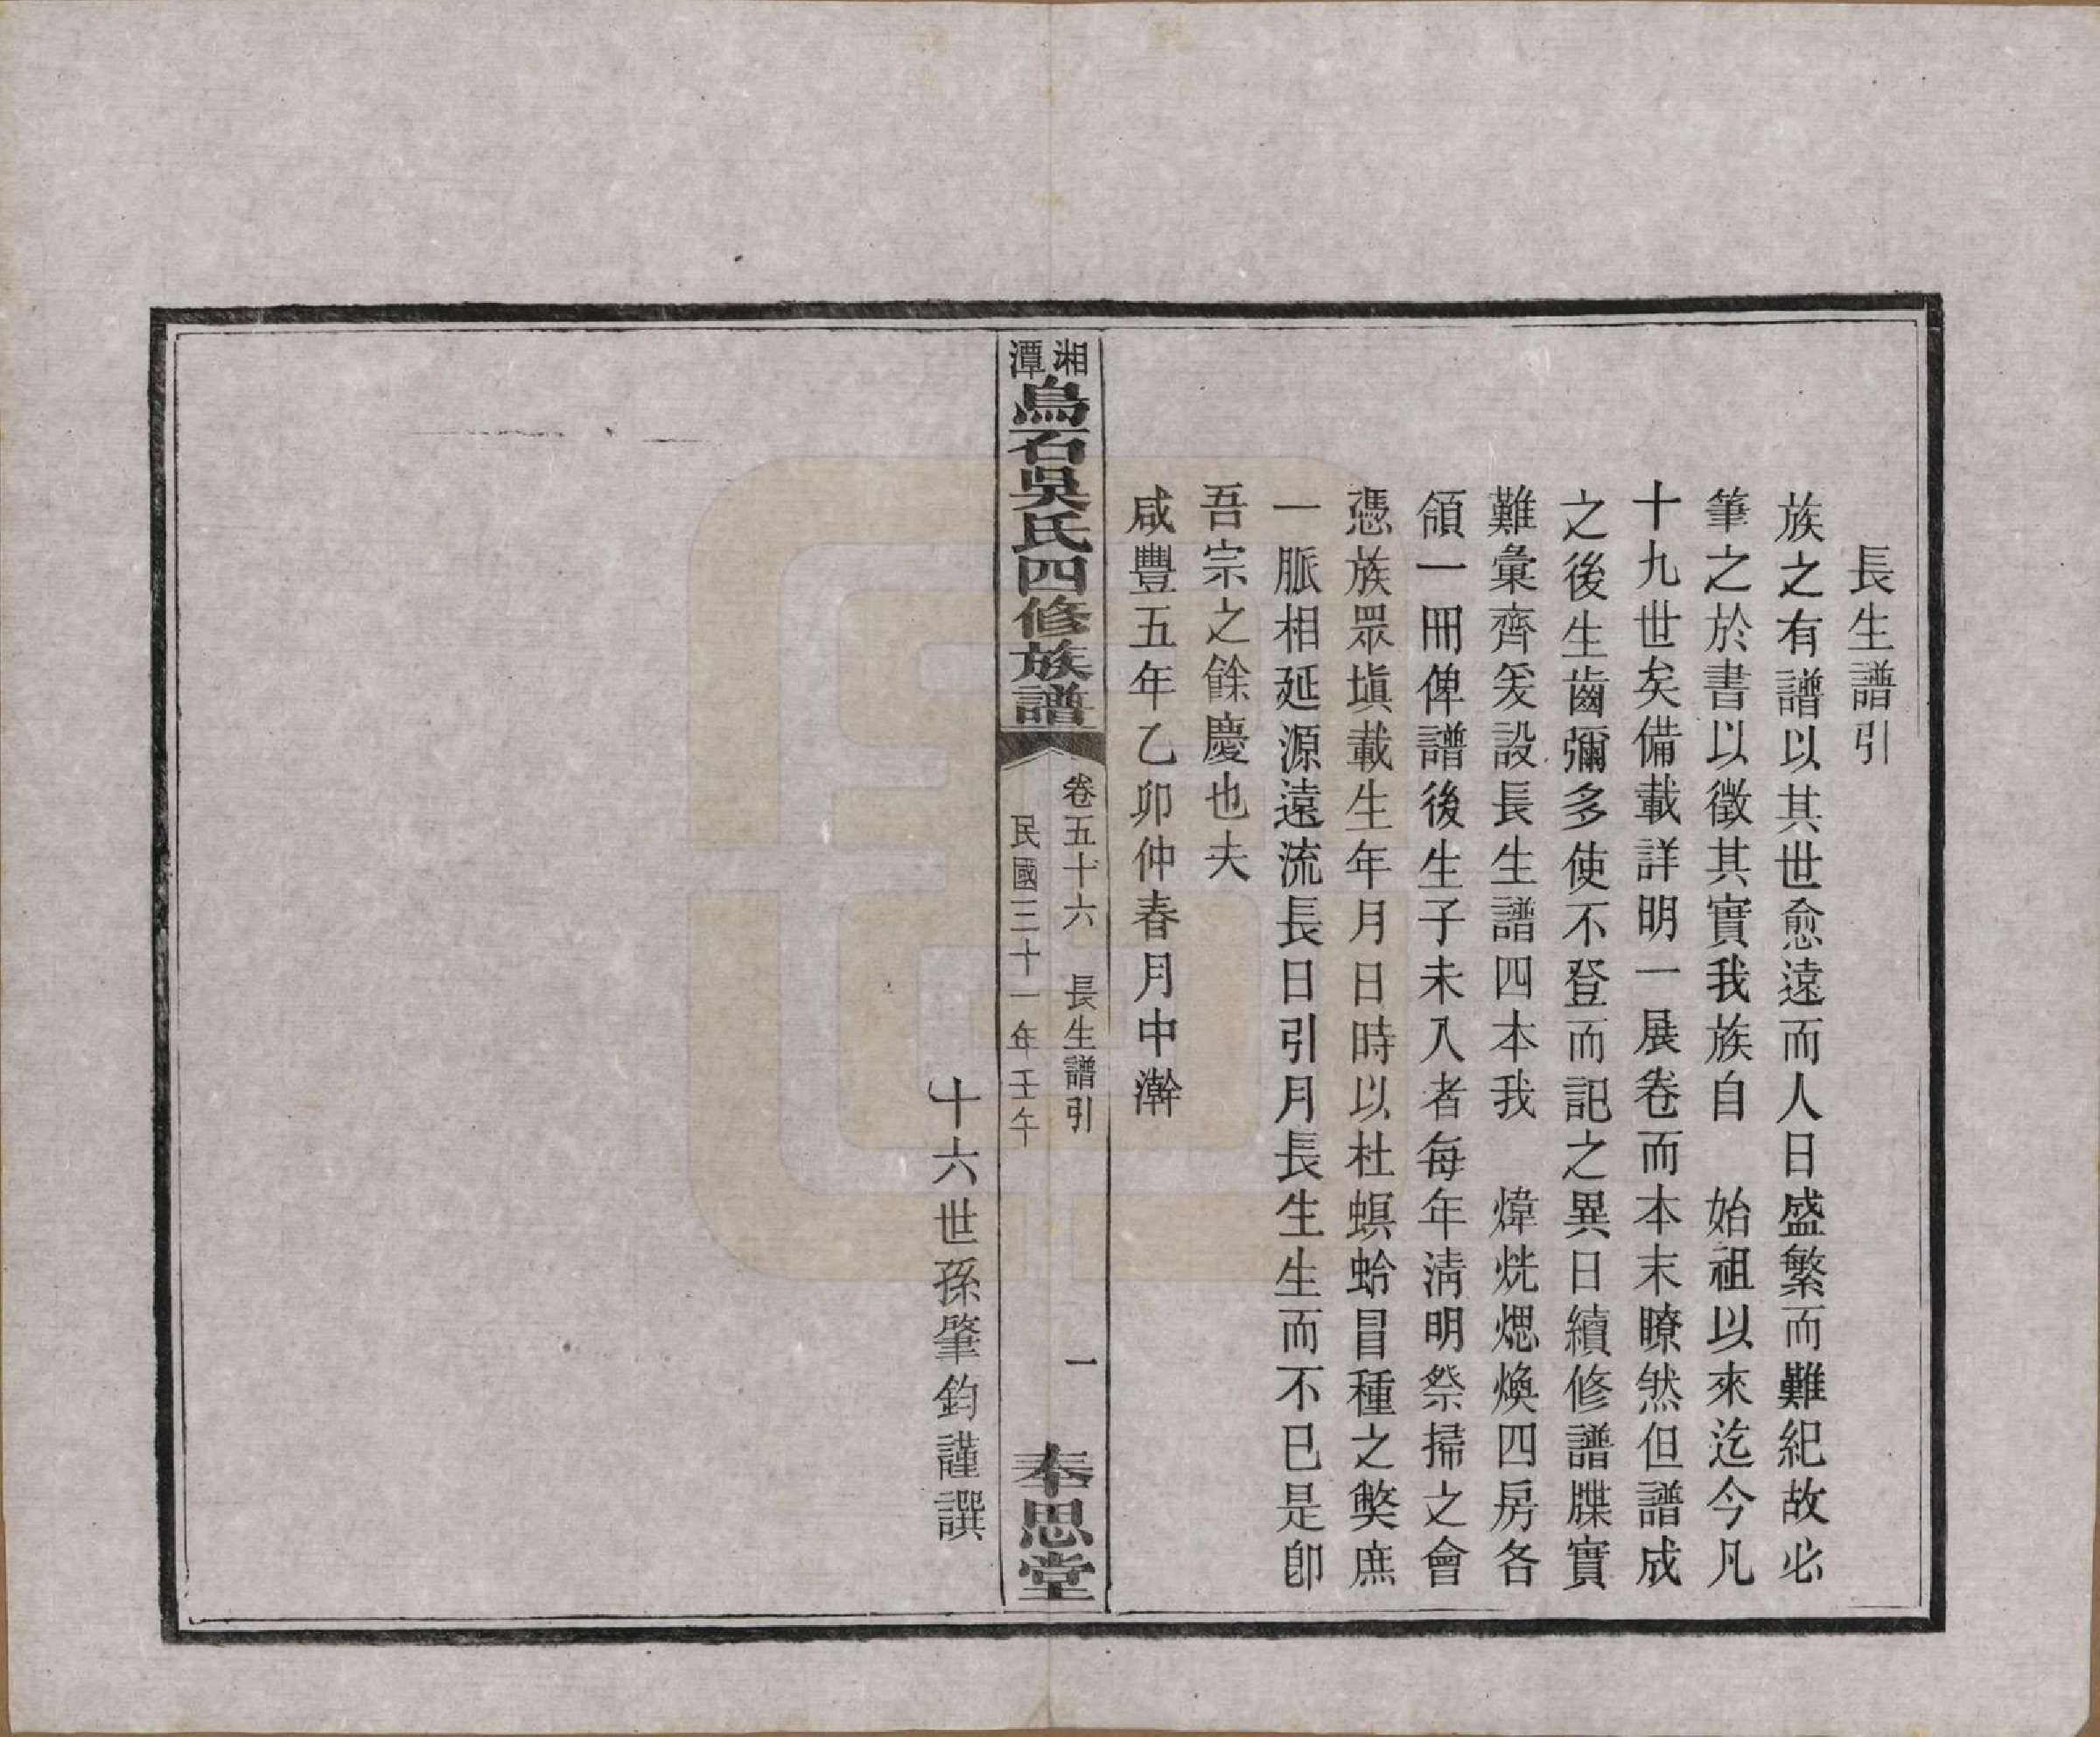 長生譜引
族之有譜以其世愈遠而人日盛繁而難紀故必
筆之於書以徵其實我族自　始祖以來迄今凡
十九世矣備載詳明一展卷而本末瞭然但譜成
之後生齒彌多使不登而記之異日續修譜牒實
難彙齊爰設長生譜四本我　煒烑煾煥四房各
領一冊俾譜後生子未入者每年淸明祭掃之會
憑族眾塡載生年月日時以杜螟蛉冒種之獘庶
一脈相延源遠流長日引月長生生而不已是卽
吾宗之餘慶也夫
咸豐五年乙卯仲春月中澣
湘潭烏石吳氏四修族譜
卷五十六　長生譜引　一
民國三十一年壬午
奉思堂
十六世孫肇鈞謹譔